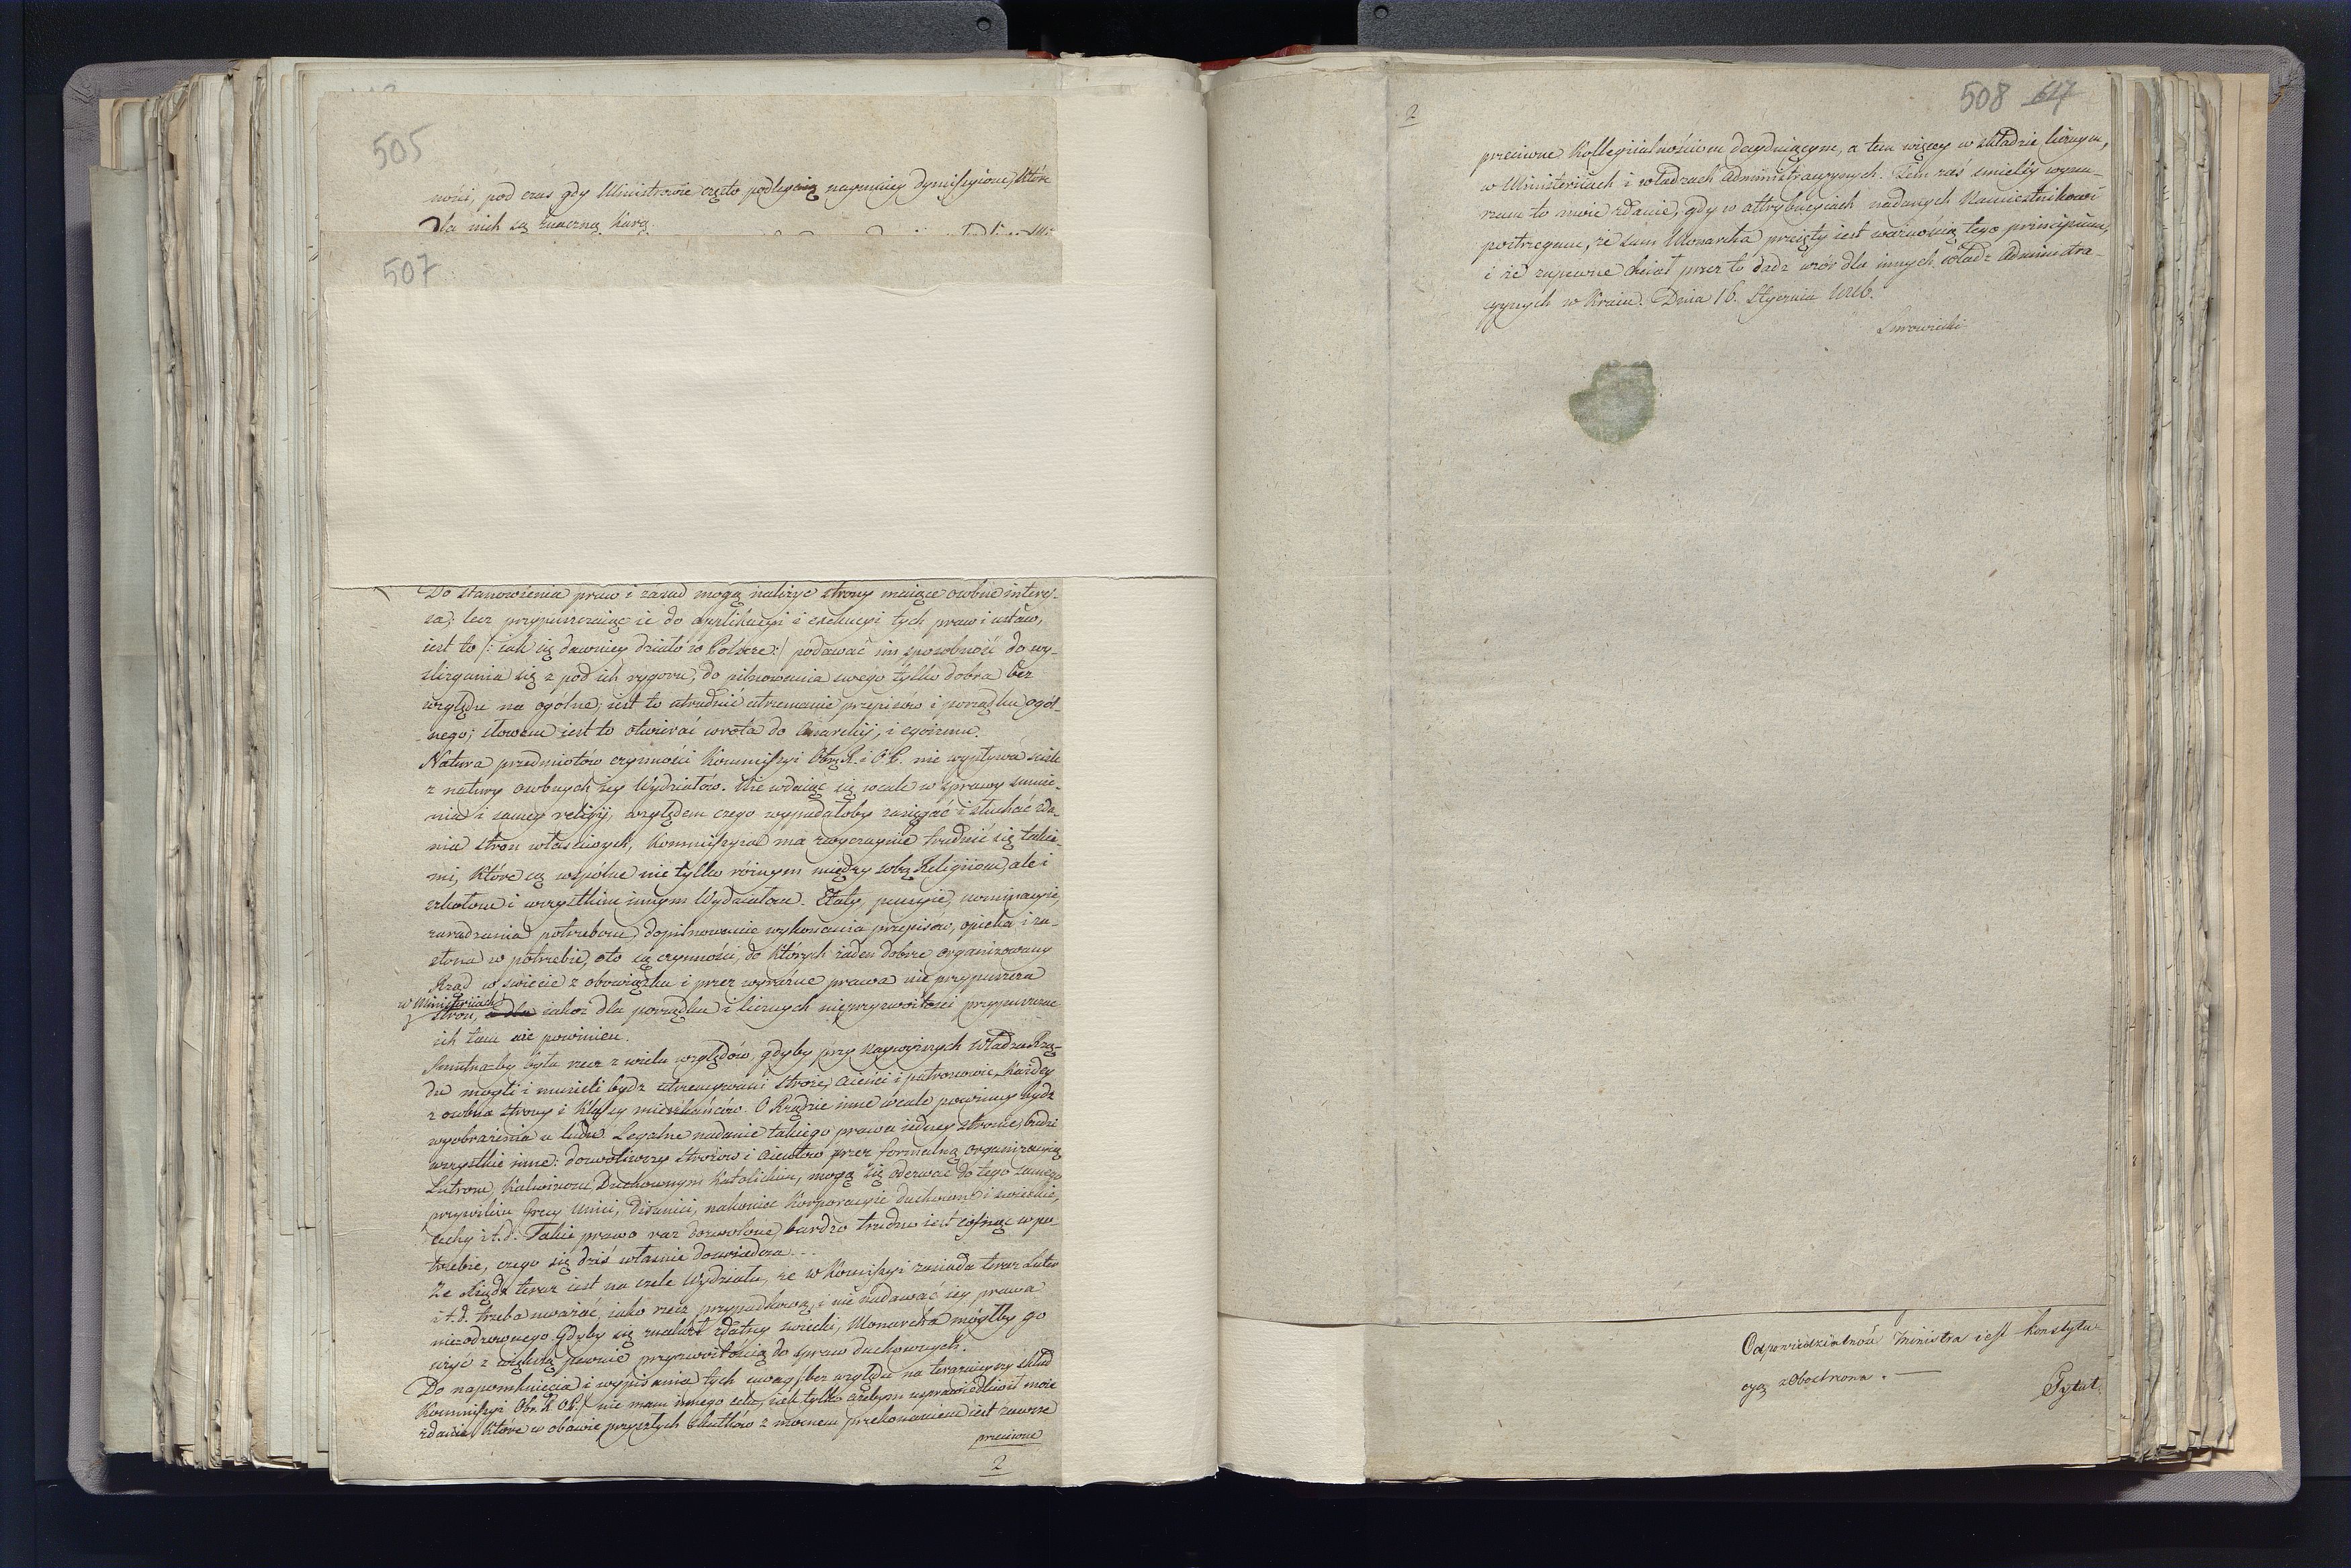 505
ności, pod czas gdy Ministrowie często podlegaią naymniey dymissyione, które
dla nich są znaczną karą.
507
Do stanowienia praw i zasad mogą należyć strony maiące osobne interes-
sa; lecz przypuszczaiąc ie do applikacyi i exekucyi tych praw i ustaw,
iest to /: iak się dawniey działo w Polszcze :/ podawać im sposobność do wy-
ślizgania się z pod ich rygoru, do pilnowania swego tylko dobra bez
względu na ogólne; iest to utrudnić utrzymanie przepisów i porządku ogól-
nego; słowem iest to otwierać wrota do Anarchij, i egoizmu.
Natura przedmiotów czynności Kommissyi Obrz. R. i O. P. nie wypływa ściśle
z natury osobnych iey Wydziałów. Nie wdaiąc się wcale w sprawy sumie-
nia i samey religij, względem czego wypadałoby zasięgać i słuchać zda-
nia stron właściwych, Kommissyia ma zwyczaynie trudnić się takie-
mi, które są wspólne nie tylko różnym między sobą Religiiom, ale i
szkołom i wszystkim innym Wydziałom. Etaty, pensyie, nominacyie,
zaradzania potrzebom, dopilnowanie wykonania przepisów, opieka i za-
słona w potrzebie, oto są czynności, do których żaden dobrze organizowany
Rząd w świecie z obowiązku i przez wyraźne prawa nie przypuszcza
w Ministeriiach
stron, iakoż dla porządku i licznych nieprzyzwoitości przypuszczać
ich tam nie powinien.
Smutna by była rzecz z wielu względów, gdyby przy naywyższych Władzach Rzą-
du mogli i musieli bydz utrzymywani stróże, aienci i patronowie każdey
z osobna strony i klassy mieszkańców. O Rządzie inne wcale powinny bydz
wyobrażenia u ludu. Legalne nadanie takiego prawa iedney stronie, budzi
wszystkie inne: dozwoliwszy stróżów i aientów przez formalną organizacyią
Lutrom, Kalwinom, Duchownym Katolickim, mogą się odezwać do tego samego
przywileiu Grecy Unici, Dizunici, nakoniec Korporacyie duchowne i świeckie,
cechy i t. d. Takie prawo raz dozwolone, bardzo trudno iest cofnąć w po-
trzebie, czego się dziś właśnie doświadcza...
Że Xiądz teraz iest na czele Wydziału, że w Komissyi zasiada teraz Luter
i t. d. trzeba uważać, iako rzecz przypadkową, i nie nadawać iey prawa
niezodzownego. Gdyby się znalazł zdatny świecki, Monarcha mógłby go
użyć z większą pewnie przyzwoitością do spraw duchownych.
Do napomknięcia i wypisania tych uwag /: bez względu na teraznieyszy skład
Kommissyi Obr. R. O. P. :/ nie mam innego celu, iak tylko ażebym usprawiedliwił moie
zdanie, które w obawie przyszłych skutków z mocnem przekonaniem iest zawsze
przeciwne
2
2
508 617
przeciwne Kollegialnościom decyduiącym, a tem więcey w składzie licznym,
w Ministeriiach i władzach Administracyynych. Tem zaś śmieley wynu-
rzam to moie zdanie, gdy w attrybucyiach nadanych Namiestnikowi
postrzegam, że sam Monarcha przeięty iest ważnością tego principium,
i że zapewne chciał przez to dadz wzór dla innych władz Administra-
cyynych w Kraiu. Dnia 16. Stycznia 1816.
Surowiecki
Odpowiedzialność Ministra iest konstytu-
cyą zobostrzona. —
Tytuł.